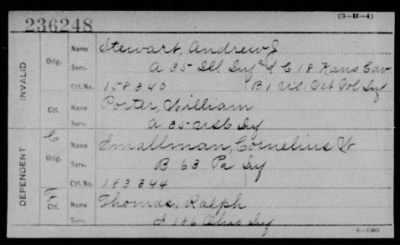 236248
(3-H-4)
INVALID
Orig.
Name Stewart, Andrew J
Serv. A 35 Ill Inf & C 18 Kans Cav
Ctf. No. 158340 B 1 U.S. Vet Vol Inf
Ctf.
Name Porter, William
Serv. A 35 Inf
DEPENDENT
C
Orig.
Name Smallman, Cornelius W
Serv. B 63 Pa Inf
Ctf. No. 183344
C
Ctf.
Name Thomas, Ralph
Serv. I 186 Ohio Inf